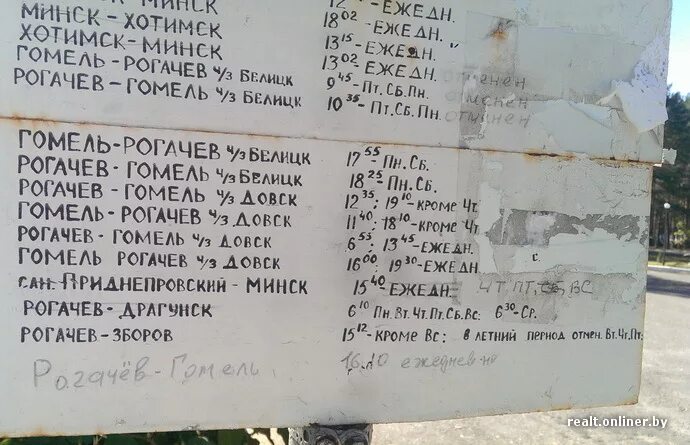 МИНСК
МИНСК-ХОТИМСК 18 02 -ЕЖЕДН.
ХОТИМСК-МИНСК 13 15 -ЕЖЕДН.
ГОМЕЛЬ-РОГАЧЕВ Ч/З БЕЛИЦК 13 02 ЕЖЕДН. отменен
РОГАЧЕВ-ГОМЕЛЬ Ч/З БЕЛИЦК 9 45 -ПТ.СБ.ПН. отменен
10 35 -ПТ.СБ.ПН отменен
ГОМЕЛЬ-РОГАЧЕВ Ч/З БЕЛИЦК 17 55 -ПН.СБ.
РОГАЧЕВ-ГОМЕЛЬ Ч/З БЕЛИЦК 18 25 -ПН.СБ.
РОГАЧЕВ-ГОМЕЛЬ Ч/З ДОВСК 12 35; 19 10 -КРОМЕ ЧТ.
ГОМЕЛЬ-РОГАЧЕВ Ч/З ДОВСК 11 40; 18 10 -КРОМЕ ЧТ.
РОГАЧЕВ-ГОМЕЛЬ Ч/З ДОВСК 6 55; 13 45 -ЕЖЕДН.
ГОМЕЛЬ РОГАЧЕВ Ч/З ДОВСК 16 00; 19 30 -ЕЖЕДН.
САН. ПРИДНЕПРОВСКИЙ - МИНСК 15 40 ЕЖЕДН ЧТ,ПТ,СБ,ВС
РОГАЧЕВ-ДРАГУНСК 6 10 ПН.ВТ.ЧТ.ПТ.СБ.ВС: 6 30 -СР.
РОГАЧЕВ-ЗБОРОВ 15 12 -КРОМЕ ВС: В ЛЕТНИЙ ПЕРИОД ОТМЕН. ВТ.ЧТ.ПТ:
Рогачёв-Гомель. 16.10 ежедневно
realt.onliner.by